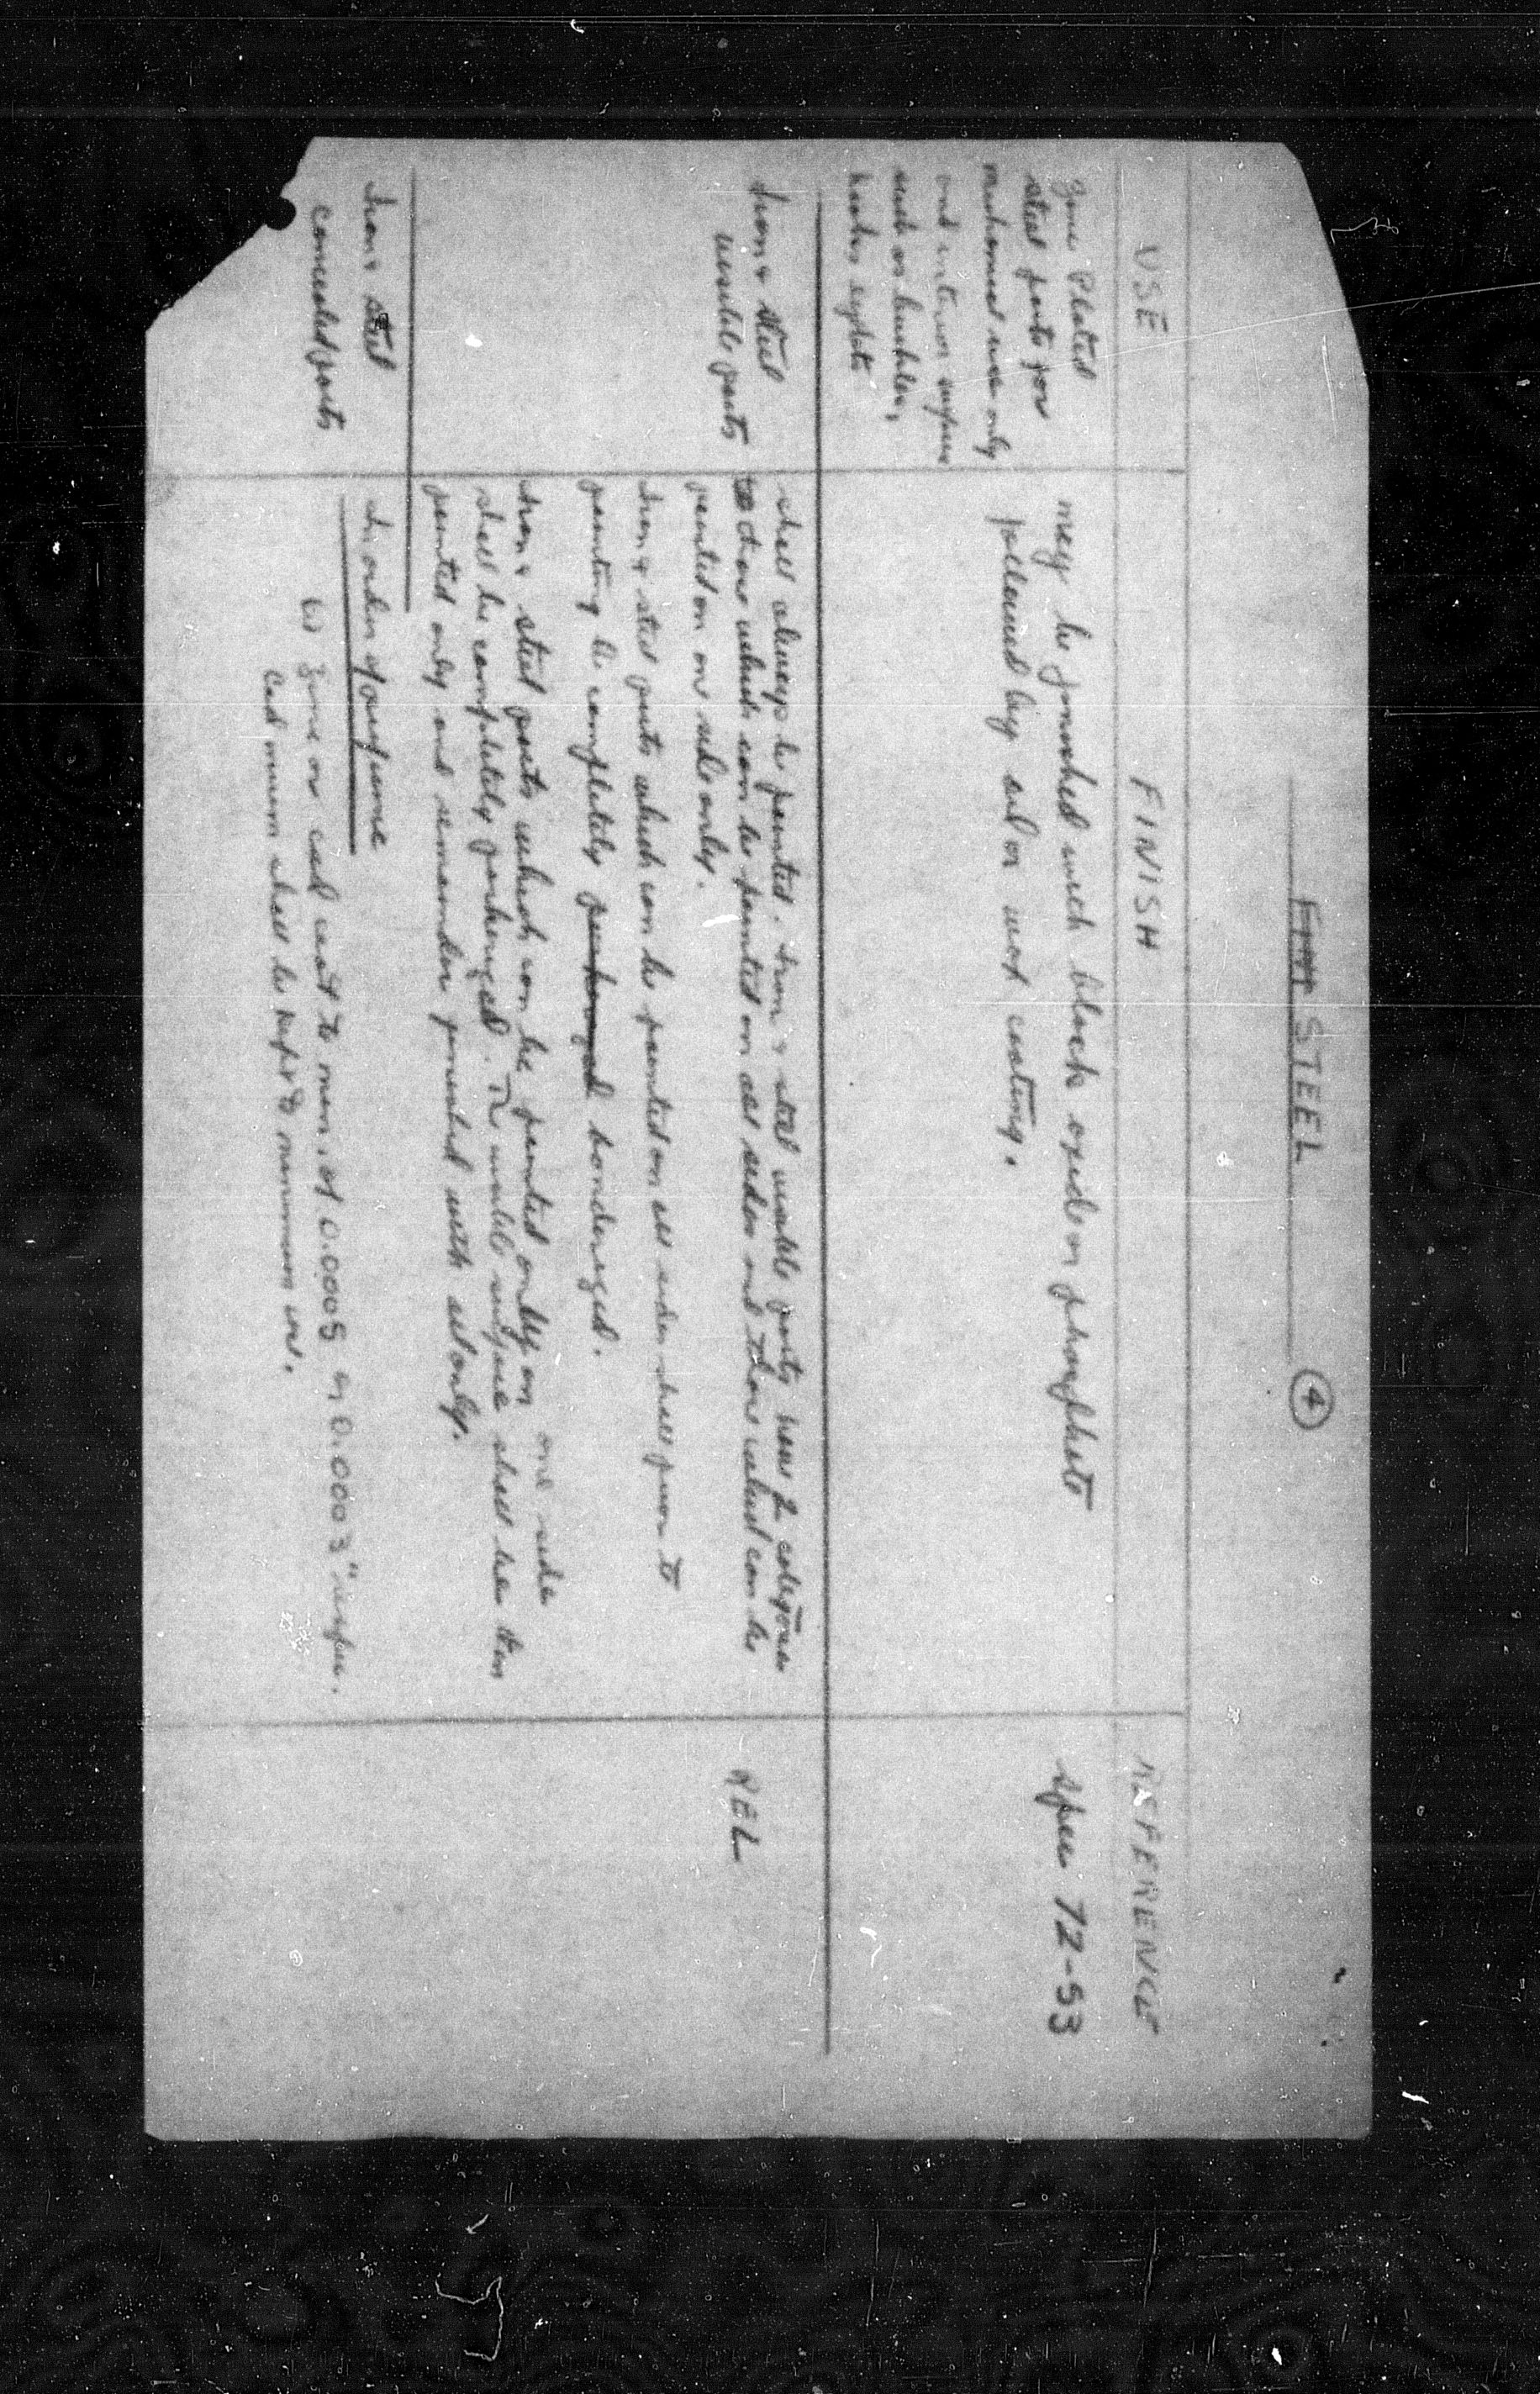 STEEL
4
USE FINISH REFERENCE
Zinc Plated
steel parts for
mechanical use only
and interior surfaces
such as buckles,
hooks, eyelets
may be finished with black oxide or phosphate
followed by oil or wax coating.
Spec 72-53
Iron & steel
visible parts
shall always be painted. Iron & steel visible parts have 2 categories
those which can be painted on all sides and those which can be
painted on one side only.
Iron & steel parts which can be painted on all sides shall prior to
painting be completely bonderized.
Iron & steel parts which can be painted only on one side
shall be completely parkerized. The visible surface shall be then
painted only and remainder finished with oil only.
REL
Iron & steel
concealed parts
In order of preference
(1) Zinc or cad coat to min. of 0.0005 or 0.0003"
Cadmium shall be kept to minimum use.